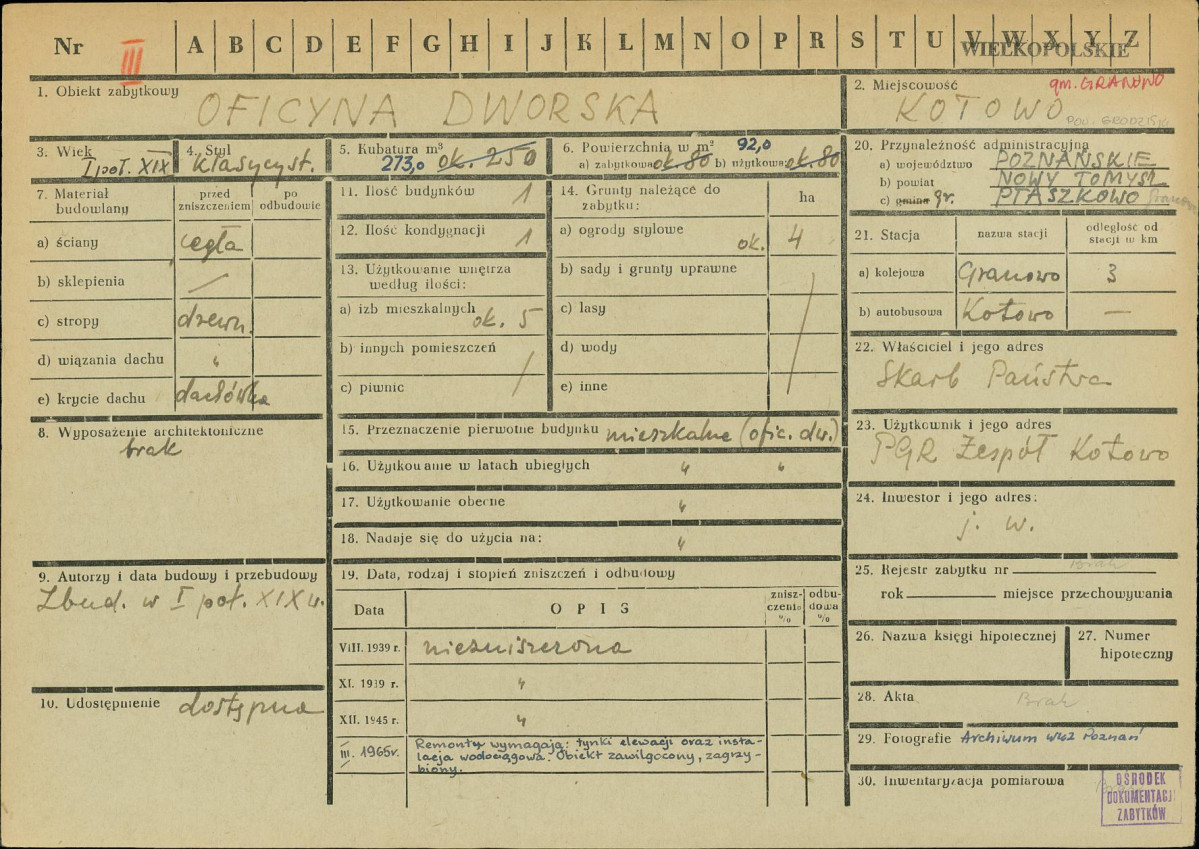 Nr III A B C D E F G H I J K L M N O P R S T U V W X Y Z
WIELKOPOLSKIE
1. Obiekt zabytkowy OFICYNA DWORSKA
2. Miejscowość gm. GRANOWO
KOTOWO
POW. GRODZISK
3. Wiek I poł. XIX
4. Styl klasycyst.
5. Kubatura m³ 273,0 ok. 250
6. Powierzchnia w m² 92,0
a) zabytkowa ok. 80 b) użytkowa ok. 80
20. Przynależność administracyjna
a) województwo POZNAŃSKIE
b) powiat NOWY TOMYSL
c) gmina gr. PTASZKOWO Granowo
7. Materiał budowlany
przed zniszczeniem
po odbudowie
a) ściany cegła
b) sklepienia —
c) stropy drewn.
d) wiązania dachu "
e) krycie dachu dachówka
8. Wyposażenie architektoniczne
brak
9. Autorzy i data budowy i przebudowy
Zbud. w I poł. XIX w.
10. Udostępnienie dostępna
11. Ilość budynków 1
12. Ilość kondygnacji 1
13. Użytkowanie wnętrza
według ilości:
a) izb mieszkalnych ok. 5
b) innych pomieszczeń
c) piwnic /
14. Grunty należące do
zabytku: ha
a) ogrody stylowe ok. 4
b) sady i grunty uprawne
c) lasy
d) wody
e) inne
15. Przeznaczenie pierwotne budynku mieszkalne (ofic. dw.)
16. Użytkowanie w latach ubiegłych " "
17. Użytkowanie obecne "
18. Nadaje się do użycia na: "
19. Data, rodzaj i stopień zniszczeń i odbudowy
Data OPIS zniszczenie % odbudowa %
VIII. 1939 r. niezniszczona
XI. 1939 r. "
XII. 1945 r. "
III. 1965r. Remontu wymagają: tynki elewacji oraz insta-
lacja wodociągowa. Obiekt zawilgocony, zagrzy-
biony.
21. Stacja nazwa stacji odległość od stacji w km
a) kolejowa Granowo 3
b) autobusowa Kotowo —
22. Właściciel i jego adres
Skarb Państwa
23. Użytkownik i jego adres
PGR Zespół Kotowo
24. Inwestor i jego adres:
j. w.
25. Rejestr zabytku nr Brak
rok miejsce przechowywania
26. Nazwa księgi hipotecznej
27. Numer hipoteczny
28. Akta Brak
29. Fotografie Archiwum WKZ Poznań
30. Inwentaryzacja pomiarowa
OŚRODEK
DOKUMENTACJI
ZABYTKÓW